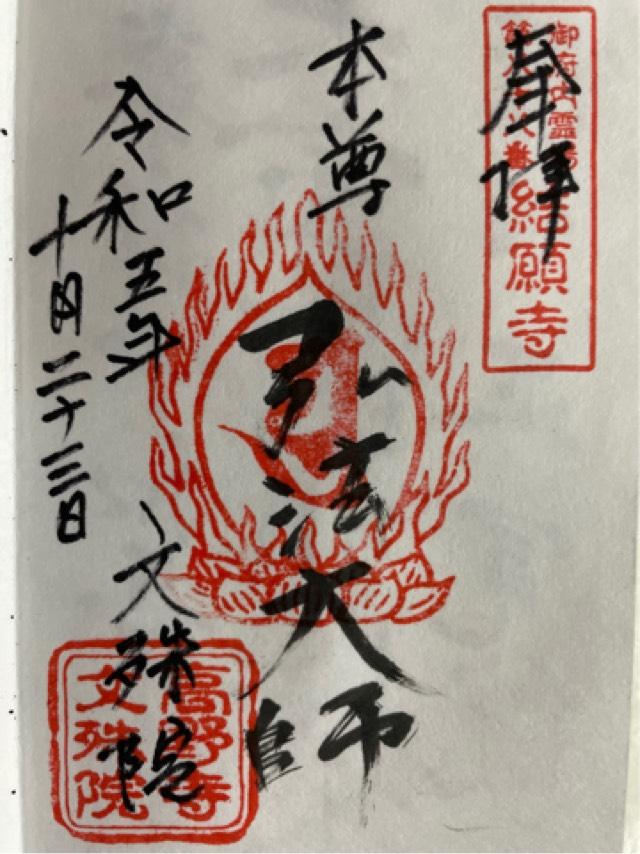 奉拝
御府内霊場
第八十八番
結願寺
本尊
弘法大師
令和五年
十月二十三日
文殊院
高野寺
文殊院